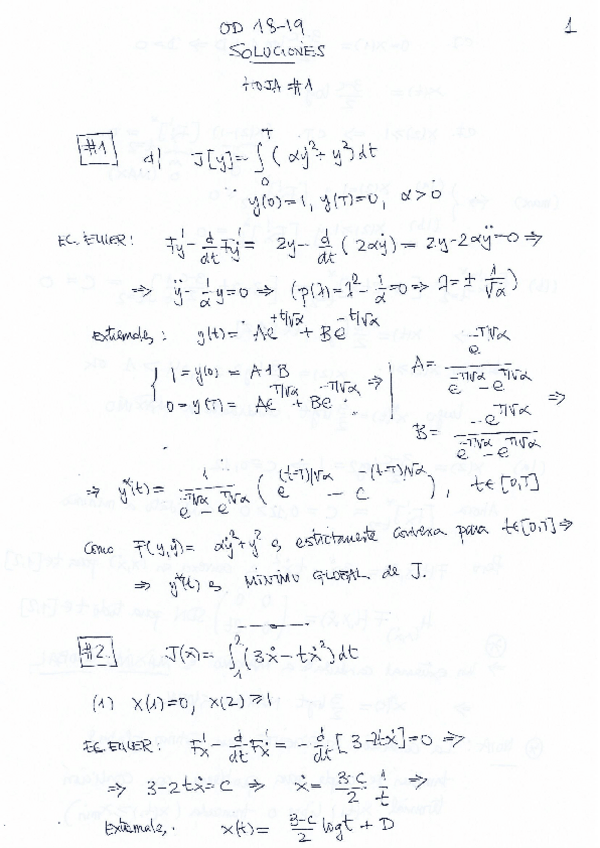 OD 18-19
1
SOLUCIONES
HOJA #1
#1 a) J[y] = ∫₀ᵀ (αẏ² + y²) dt
y(0)=1, y(T)=0, α>0
EC. EULER: F'y - d/dt F'ẏ = 2y - d/dt (2αẏ) = 2y - 2αÿ = 0 ⇒
⇒ ÿ - 1/α y = 0 ⇒ (p(λ) = λ² - 1/α = 0 ⇒ λ = ± 1/√α)
extremales: y(t) = Ae^(+t/√α) + Be^(-t/√α)
{ 1 = y(0) = A+B
0 = y(T) = Ae^(T/√α) + Be^(-T/√α) ⇒
A = e^(-T/√α) / (e^(-T/√α) - e^(T/√α))
B = -e^(T/√α) / (e^(-T/√α) - e^(T/√α)) ⇒
⇒ y*(t) = 1/(e^(-T/√α) - e^(T/√α)) (e^((t-T)/√α) - e^(-(t-T)/√α)), t∈[0,T]
Como F(y,ẏ) = αẏ² + y² es estrictamente convexa para t∈[0,T] ⇒
⇒ y*(t) es MINIMO GLOBAL de J.
#2. J(x) = ∫₁² (3ẋ - tẋ²) dt
(1) x(1)=0, x(2)≥1
EC. EULER: F'x - d/dt F'ẋ = - d/dt [3-2tẋ] = 0 ⇒
⇒ 3-2tẋ = C ⇒ ẋ = (3-C)/2 · 1/t ⇒
Extremales: x(t) = (3-C)/2 log t + D